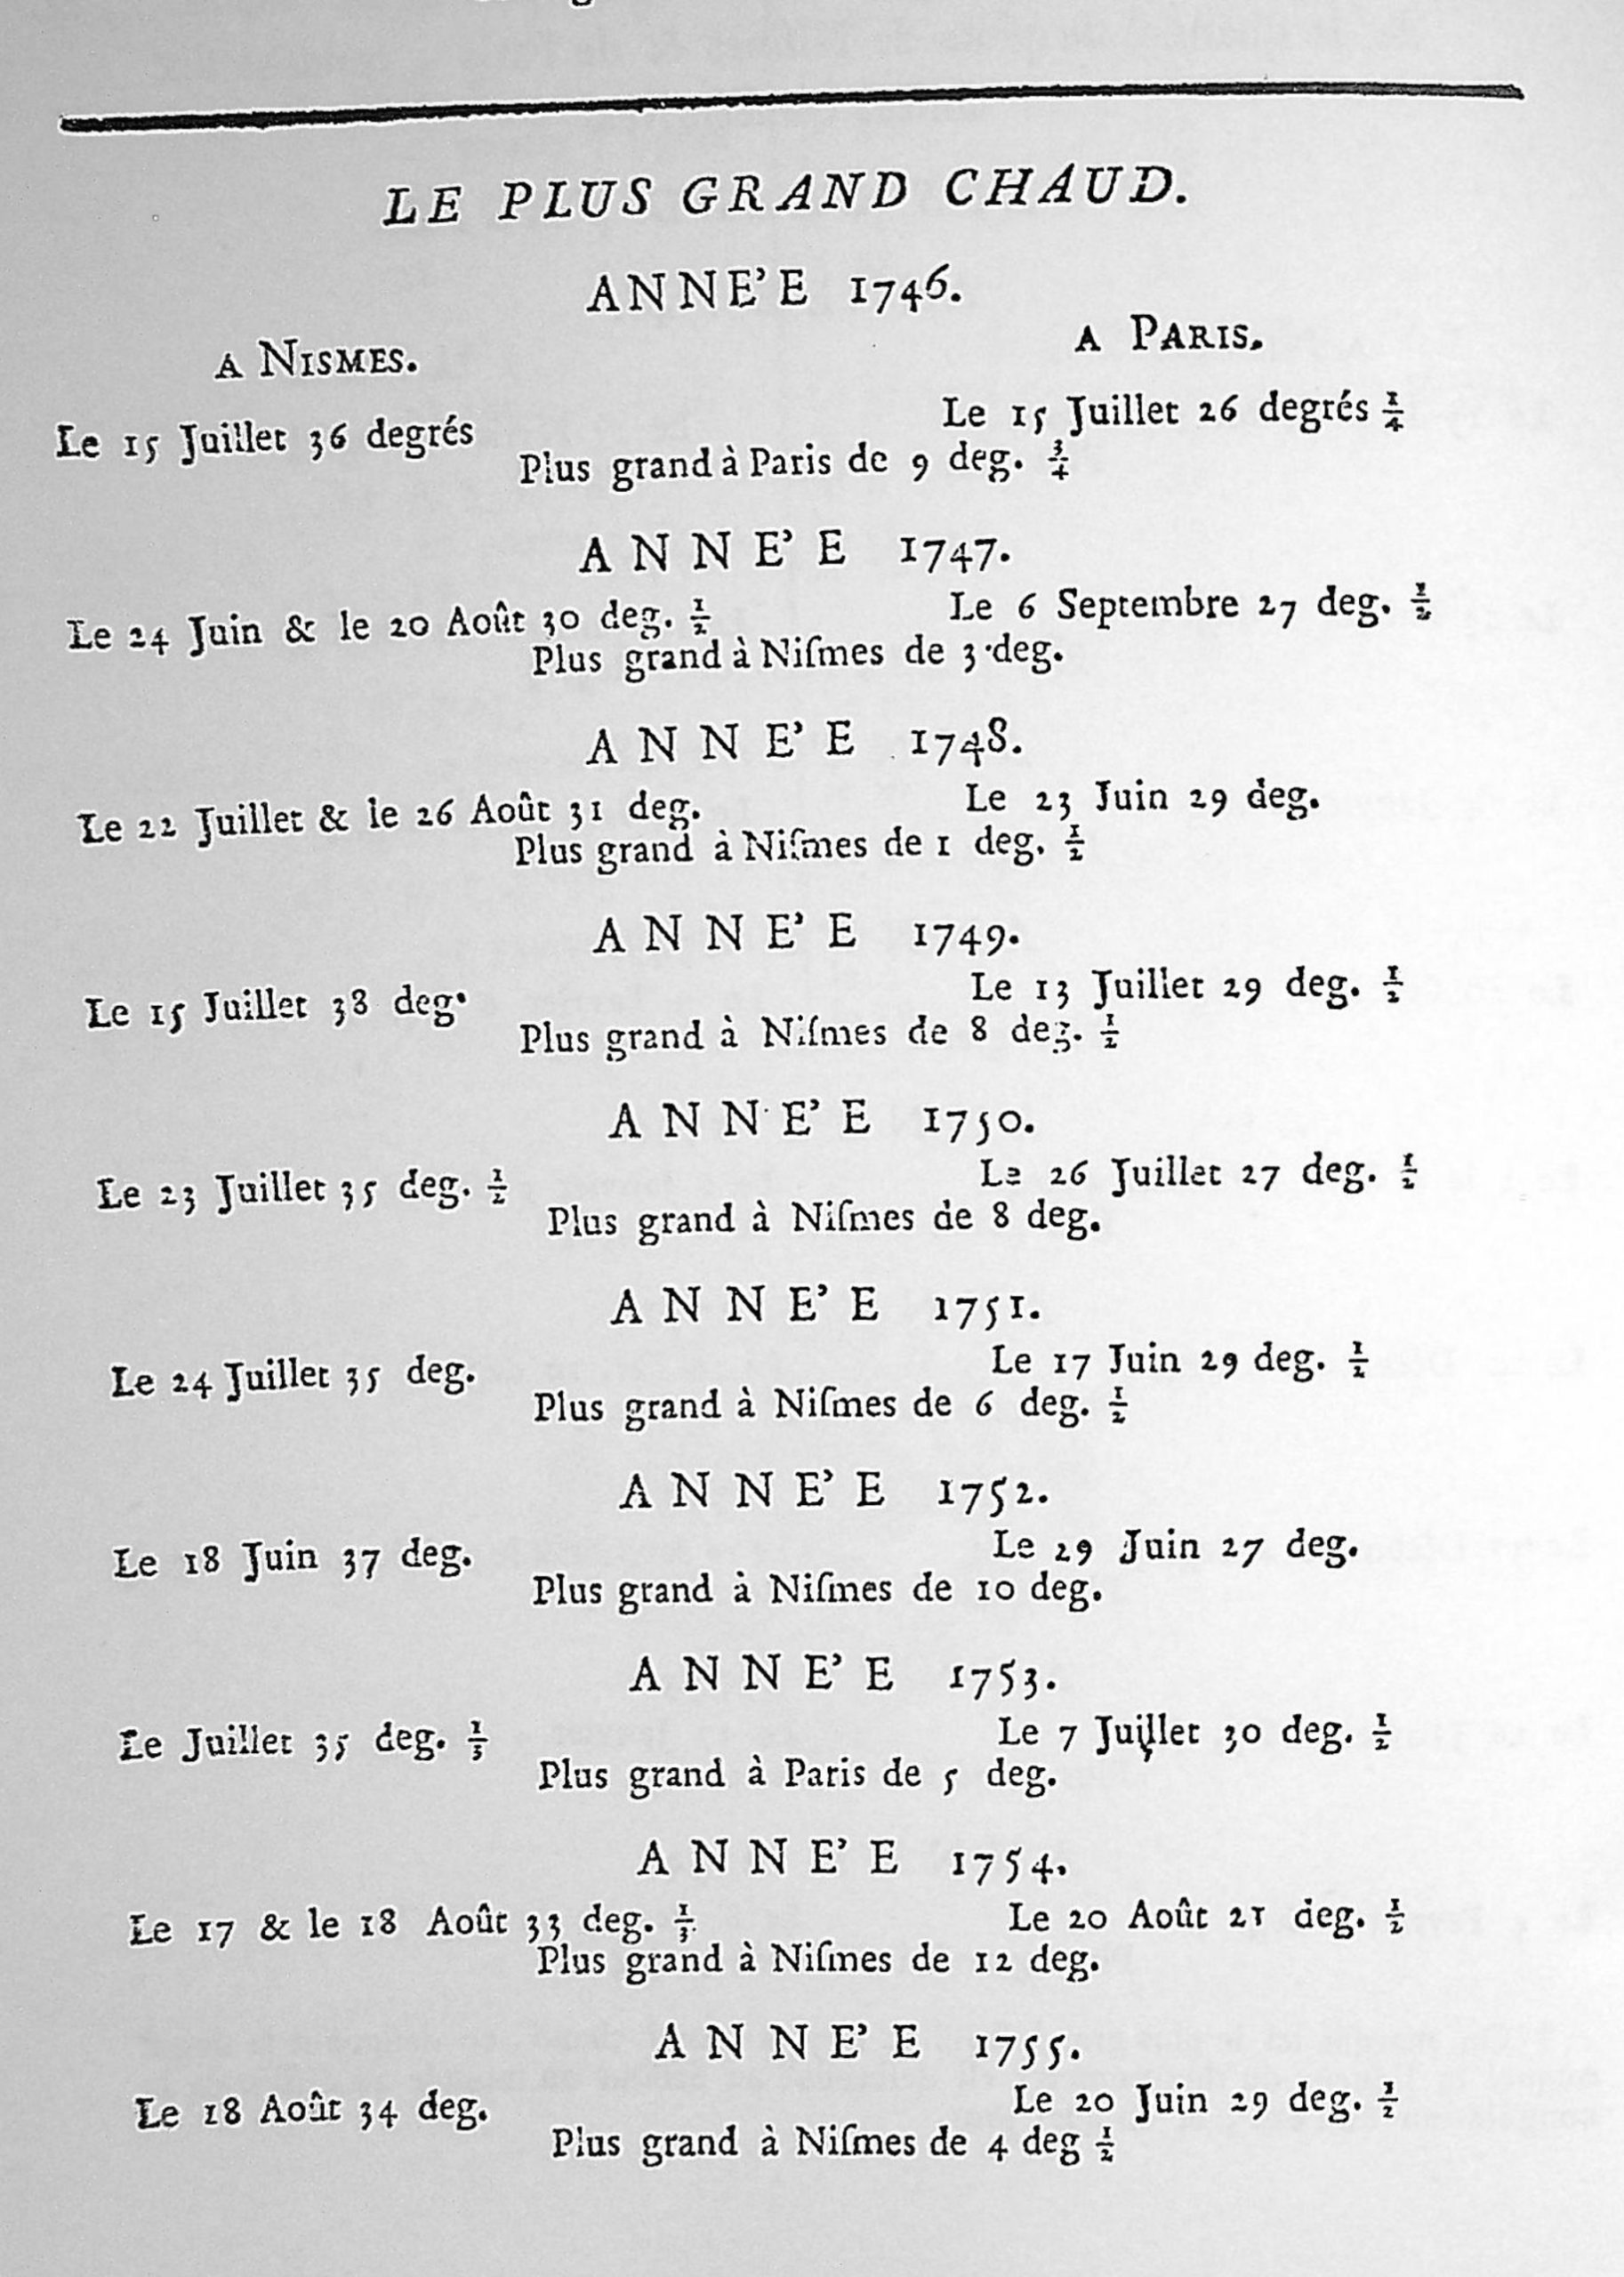 LE PLUS GRAND CHAUD.
ANNE'E 1746.
A NISMES.
A PARIS.
Le 15 Juillet 36 degrés
Le 15 Juillet 26 degrés 1/4
Plus grand à Paris de 9 deg. 3/4
ANNE'E 1747.
Le 24 Juin & le 20 Août 30 deg. 1/2
Le 6 Septembre 27 deg. 1/2
Plus grand à Niſmes de 3 deg.
ANNE'E 1748.
Le 22 Juillet & le 26 Août 31 deg.
Le 23 Juin 29 deg.
Plus grand à Niſmes de 1 deg. 1/2
ANNE'E 1749.
Le 15 Juillet 38 deg.
Le 13 Juillet 29 deg. 1/2
Plus grand à Niſmes de 8 deg. 1/2
ANNE'E 1750.
Le 23 Juillet 35 deg. 1/2
Le 26 Juillet 27 deg. 1/2
Plus grand à Niſmes de 8 deg.
ANNE'E 1751.
Le 24 Juillet 35 deg.
Le 17 Juin 29 deg. 1/2
Plus grand à Niſmes de 6 deg. 1/2
ANNE'E 1752.
Le 18 Juin 37 deg.
Le 29 Juin 27 deg.
Plus grand à Niſmes de 10 deg.
ANNE'E 1753.
Le Juillet 35 deg. 1/3
Le 7 Juillet 30 deg. 1/2
Plus grand à Paris de 5 deg.
ANNE'E 1754.
Le 17 & le 18 Août 33 deg. 1/3
Le 20 Août 21 deg. 1/2
Plus grand à Niſmes de 12 deg.
ANNE'E 1755.
Le 18 Août 34 deg.
Le 20 Juin 29 deg. 1/2
Plus grand à Niſmes de 4 deg 1/2